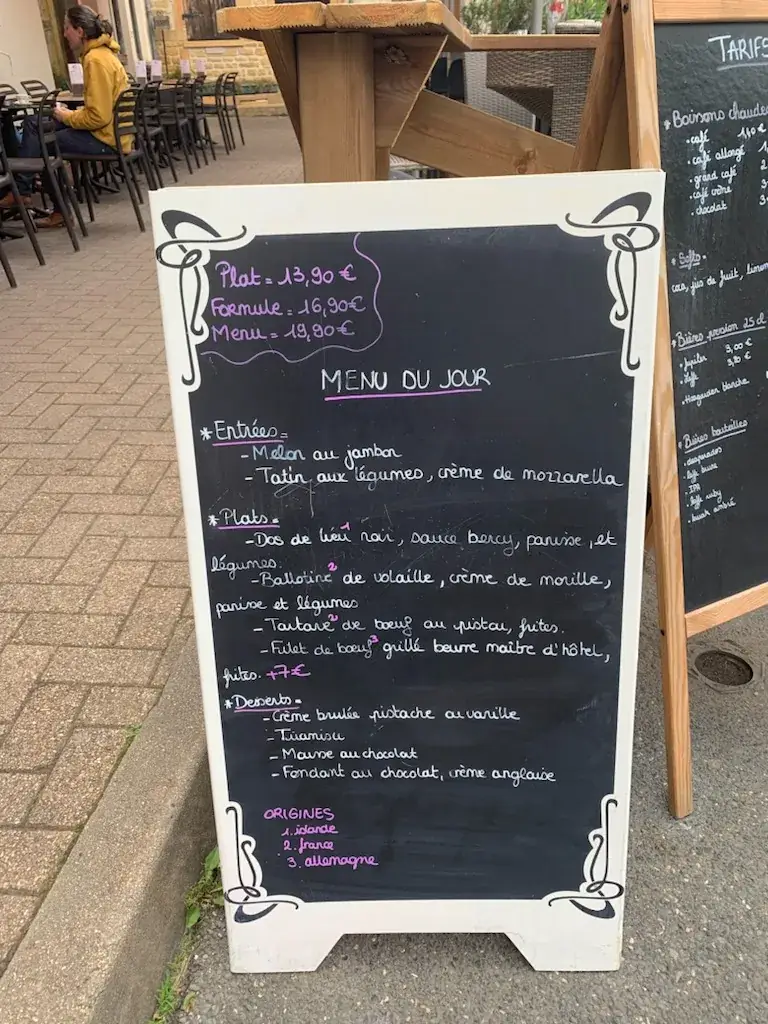 Plat = 13,90 €
Formule = 16,90€
Menu = 19,90€
MENU DU JOUR
* Entrées =
- Melon au jambon
- Tatin aux légumes, crème de mozzarella
* Plats =
- Dos de lieu¹ noir, sauce bercy, panisse, et
légumes.
- Ballotine² de volaille, crème de morille,
panisse et légumes
- Tartare² de bœuf au pistou, frites.
- Filet de bœuf³ grillé beurre maître d'hôtel,
frites. +7€
* Desserts =
- Crème brulée pistache ou vanille
- Tiramisu
- Mousse au chocolat
- Fondant au chocolat, crème anglaise
ORIGINES
1. islande
2. france
3. allemagne
TARIFS
* Boissons chaudes
• café 1,40 €
• café allongé
• grand café
• café crème
• chocolat
* Softs -
coca, jus de fruit,
* Bières pression 25 cl
• Jupiler 3,00 €
• Leffe 3,20 €
• Hoegaarden blanche
* Bières bouteilles
• desperados
• leffe brune
• IPA
• leffe ruby